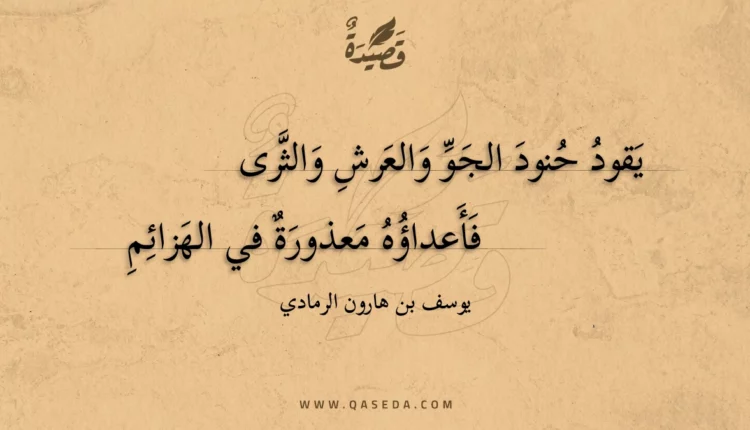 قَصِيدَةٌ
يَقودُ حُنودَ الجَوِّ وَالعَرشِ وَالثَّرى
فَأَعداؤُهُ مَعذورَةٌ في الهَزائِمِ
يوسف بن هارون الرمادي
WWW.QASEDA.COM